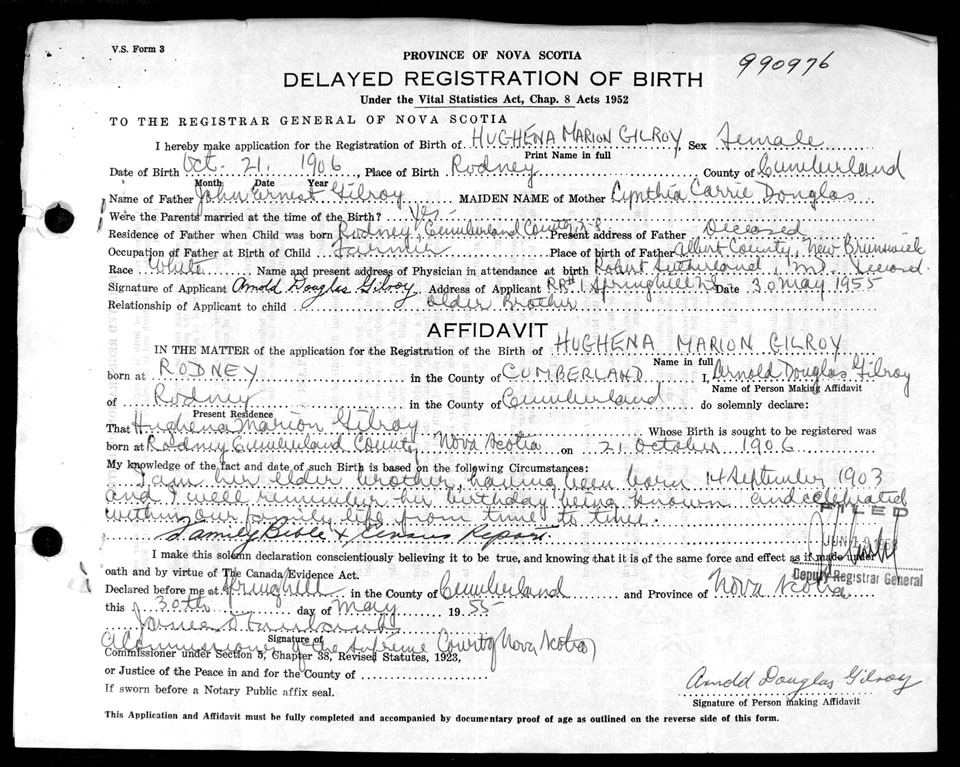 V.S. Form 3
PROVINCE OF NOVA SCOTIA
990976
DELAYED REGISTRATION OF BIRTH
Under the Vital Statistics Act, Chap. 8 Acts 1952
TO THE REGISTRAR GENERAL OF NOVA SCOTIA
I hereby make application for the Registration of Birth of HUGHENA MARION GILROY Sex Female
Print Name in full
Date of Birth Oct. 21, 1906, Place of Birth Rodney County of Cumberland
Month Date Year
Name of Father John Ernest Gilroy MAIDEN NAME of Mother Cynthia Carrie Douglas
Were the Parents married at the time of the Birth? Yes-
Residence of Father when Child was born Rodney, Cumberland County, N.S. Present address of Father Deceased
Occupation of Father at Birth of Child Farmer Place of birth of Father Albert County, New Brunswick
Race White Name and present address of Physician in attendance at birth Robert Sutherland, M.D.
Signature of Applicant Arnold Douglas Gilroy Address of Applicant RR#1 Springhill NS Date 30 May 1955
Relationship of Applicant to child older Brother
AFFIDAVIT
IN THE MATTER of the application for the Registration of the Birth of HUGHENA MARION GILROY
Name in full
born at RODNEY in the County of CUMBERLAND I, Arnold Douglas Gilroy
Name of Person Making Affidavit
of Rodney in the County of Cumberland do solemnly declare:
Present Residence
That Hughena Marion Gilroy Whose Birth is sought to be registered was
born at Rodney Cumberland County, Nova Scotia on 21 October 1906
My knowledge of the fact and date of such Birth is based on the following Circumstances:
I am her elder brother, having been born 14 September 1903
and I well remember her birthday being known and celebrated
within our family life from time to time.
FILED
Family Bible & Census Report.
I make this solemn declaration conscientiously believing it to be true, and knowing that it is of the same force and effect as if made under
oath and by virtue of The Canada Evidence Act.
Deputy Registrar General
Declared before me at Springhill in the County of Cumberland and Province of Nova Scotia
this 30th day of May 1955
James
Signature of
A Commissioner of the Supreme Court of Nova Scotia
Commissioner under Section 5, Chapter 38, Revised Statutes, 1923,
or Justice of the Peace in and for the County of
If sworn before a Notary Public affix seal.
Arnold Douglas Gilroy
Signature of Person making Affidavit
This Application and Affidavit must be fully completed and accompanied by documentary proof of age as outlined on the reverse side of this form.